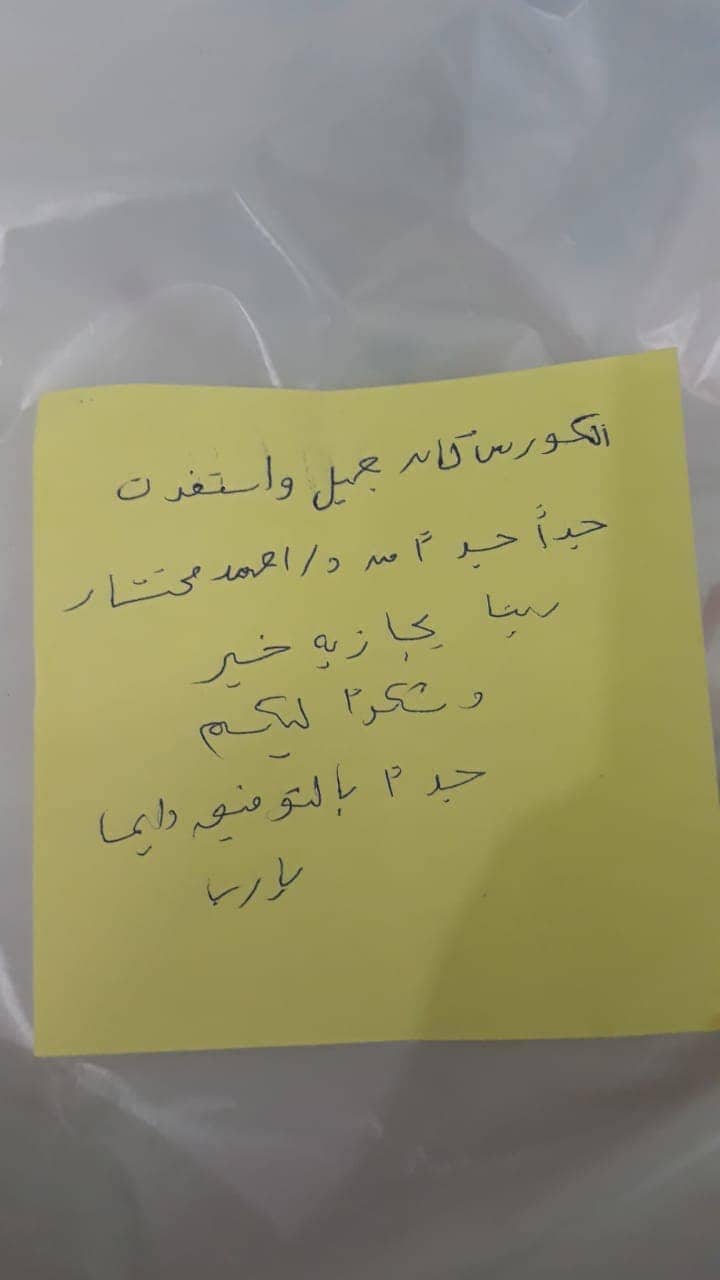 الكورس كان جميل واستفدت
جداً جداً من د/ احمد مختار
ربنا يجازيه خير
وشكراً ليكم
جداً بالتوفيق دايما
يارب